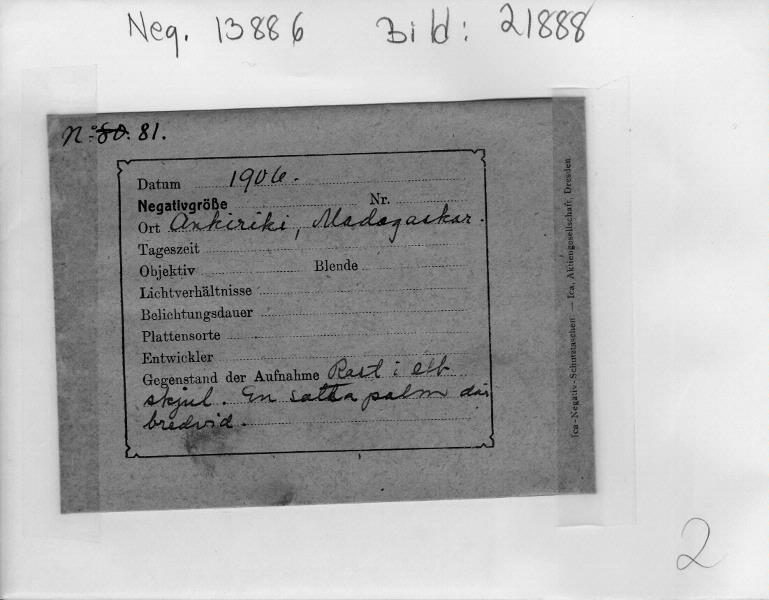 Neg. 13886 Bild: 21888
No 80. 81.
Datum 1906.
Negativgröße Nr.
Ort Ankiriki, Madagaskar.
Tageszeit
Objektiv Blende
Lichtverhältnisse
Belichtungsdauer
Plattensorte
Entwickler
Gegenstand der Aufnahme Rast i ett
skjul. En palm där
bredvid.
Ica-Negativ-Schutztaschen — Ica, Aktiengesellschaft, Dresden
2